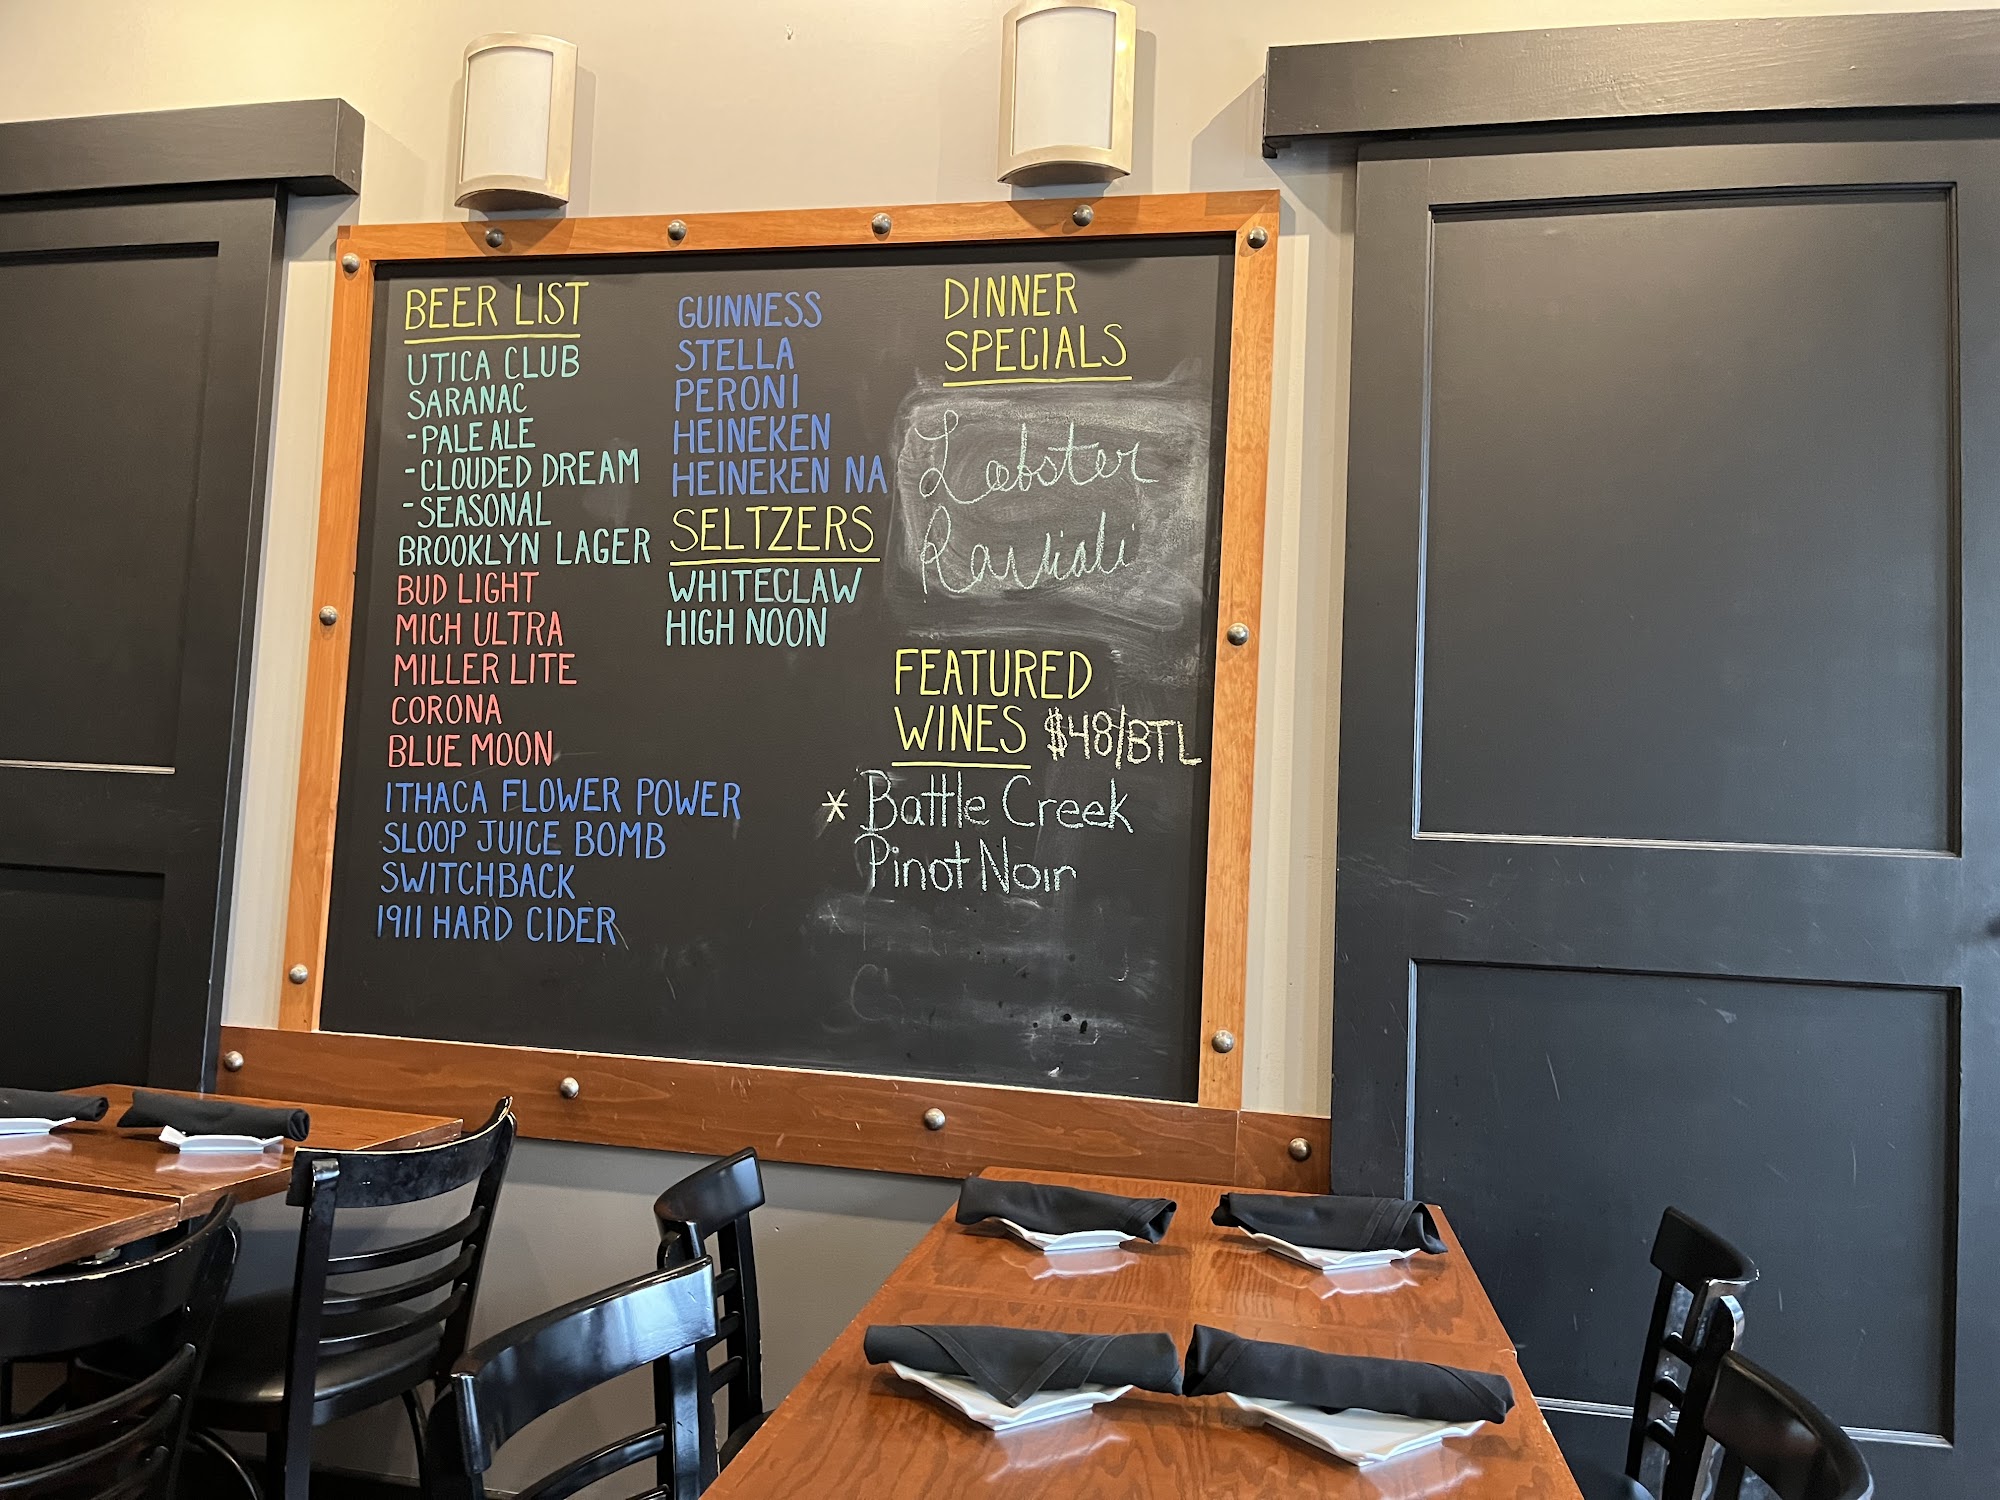 BEER LIST
UTICA CLUB
SARANAC
-PALE ALE
-CLOUDED DREAM
-SEASONAL
BROOKLYN LAGER
BUD LIGHT
MICH ULTRA
MILLER LITE
CORONA
BLUE MOON
ITHACA FLOWER POWER
SLOOP JUICE BOMB
SWITCHBACK
1911 HARD CIDER
GUINNESS
STELLA
PERONI
HEINEKEN
HEINEKEN NA
SELTZERS
WHITECLAW
HIGH NOON
DINNER
SPECIALS
Lobster
Ravioli
FEATURED
WINES $48/BTL
* Battle Creek
Pinot Noir